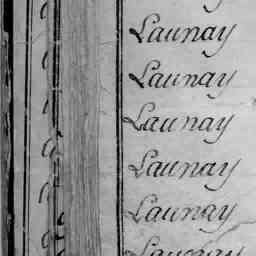 Launay
Launay
Launay
Launay
Launay
Launay